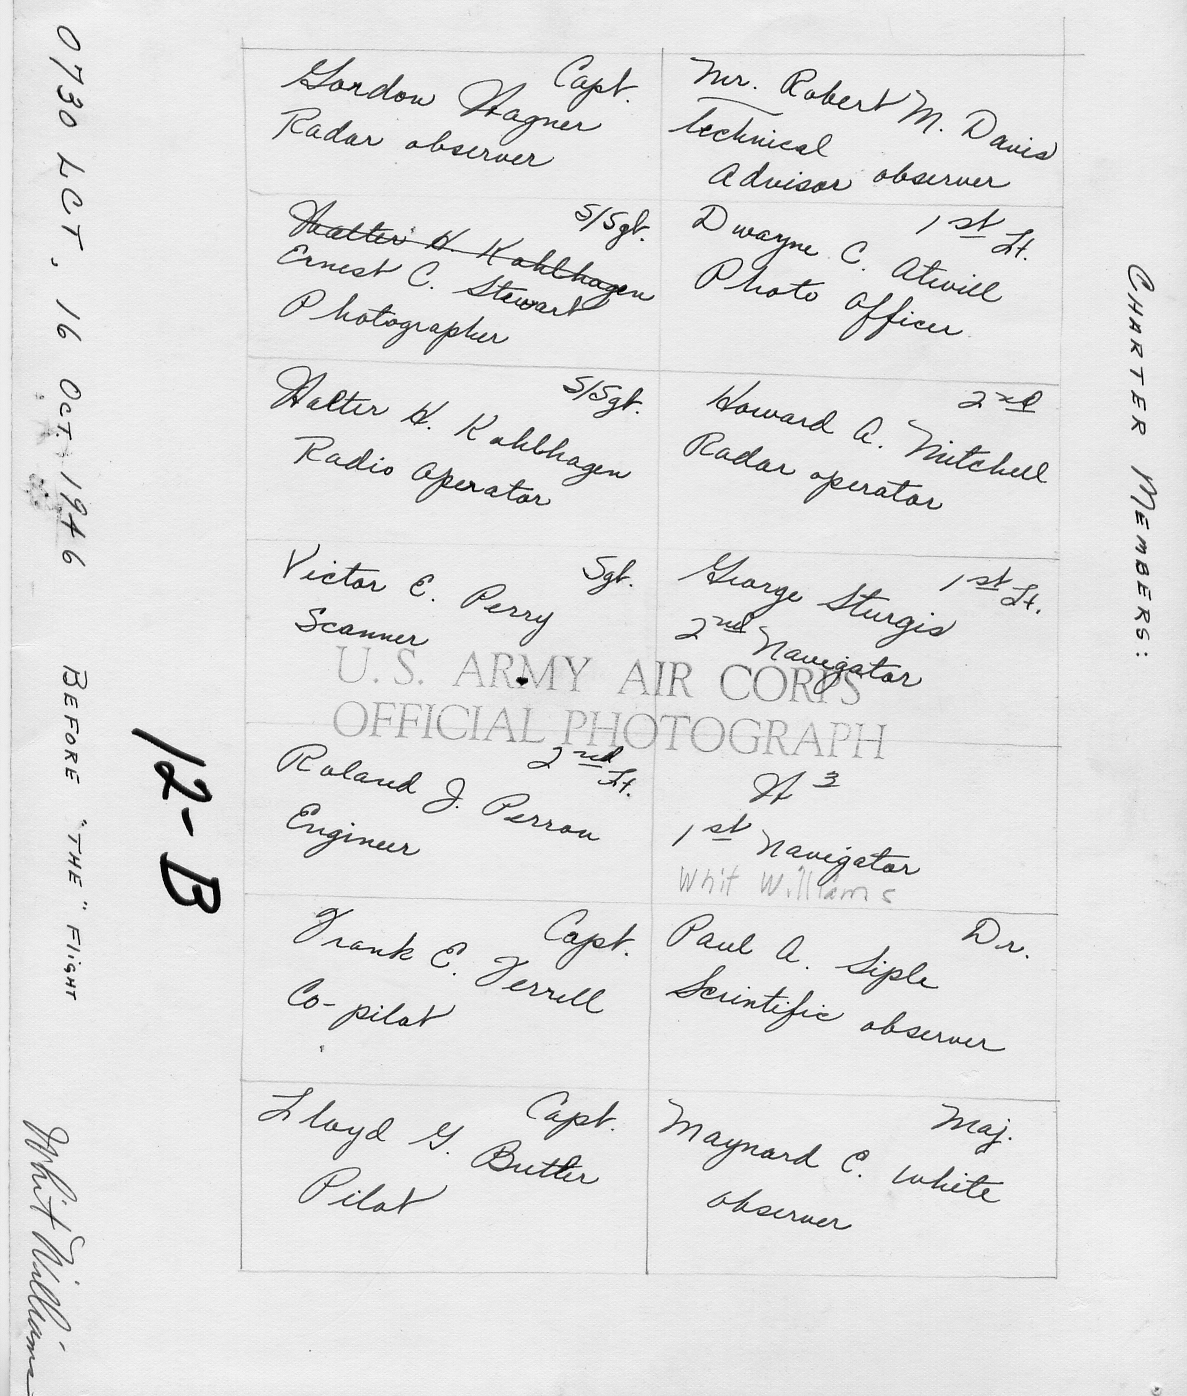 CHARTER MEMBERS:
Capt.
Gordon Wagner
Radar observer
Mr. Robert M. Davis
Technical
Advisor observer
S/Sgt.
Walter H. Kohlhagen
Ernest C. Stewart
Photographer
1st Lt.
Dwayne C. Atwill
Photo Officer
S/Sgt.
Walter H. Kohlhagen
Radio Operator
2nd
Howard A. Mitchell
Radar operator
Sgt.
Victor E. Perry
Scanner
1st Lt.
George Sturgis
2nd Navigator
U.S. ARMY AIR CORPS
OFFICIAL PHOTOGRAPH
2nd Lt.
Roland J. Perron
Engineer
W 3
1st Navigator
Whit Williams
Capt.
Frank E. Ferrell
Co-pilot
Dr.
Paul A. Siple
Scientific observer
Capt.
Lloyd G. Butler
Pilot
Maj.
Maynard E. White
observer
12-B
0730 LCT, 16 OCT. 1946 BEFORE "THE" FLIGHT
Whit Williams